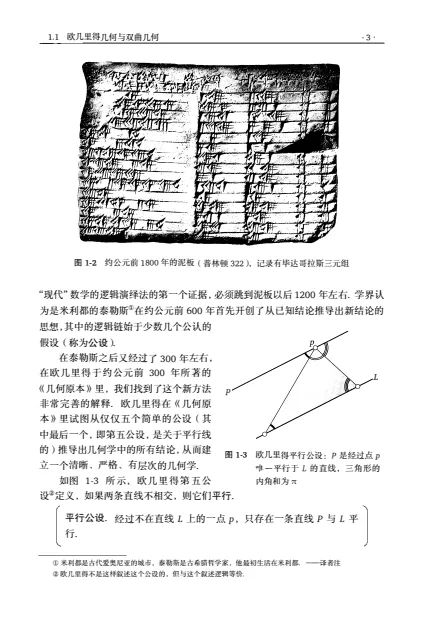 1.1 欧几里得几何与双曲几何 ·3·
图 1-2 约公元前 1800 年的泥板（普林顿 322），记录有毕达哥拉斯三元组
“现代”数学的逻辑演绎法的第一个证据，必须跳到泥板以后 1200 年左右. 学界认
为是米利都的泰勒斯①在约公元前 600 年首先开创了从已知结论推导出新结论的
思想，其中的逻辑链始于少数几个公认的
假设（称为公设）.
在泰勒斯之后又经过了 300 年左右，
在欧几里得于约公元前 300 年所著的
《几何原本》里，我们找到了这个新方法
非常完善的解释. 欧几里得在《几何原
本》里试图从仅仅五个简单的公设（其
中最后一个，即第五公设，是关于平行线
的）推导出几何学中的所有结论，从而建
立一个清晰、严格、有层次的几何学.
如图 1-3 所示，欧几里得第五公
设②定义，如果两条直线不相交，则它们平行.
p
P
L
图 1-3 欧几里得平行公设：P 是经过点 p
唯一平行于 L 的直线，三角形的
内角和为 π
平行公设. 经过不在直线 L 上的一点 p，只存在一条直线 P 与 L 平
行.
① 米利都是古代爱奥尼亚的城市，泰勒斯是古希腊哲学家，他最初生活在米利都. ——译者注
② 欧几里得不是这样叙述这个公设的，但与这个叙述逻辑等价.